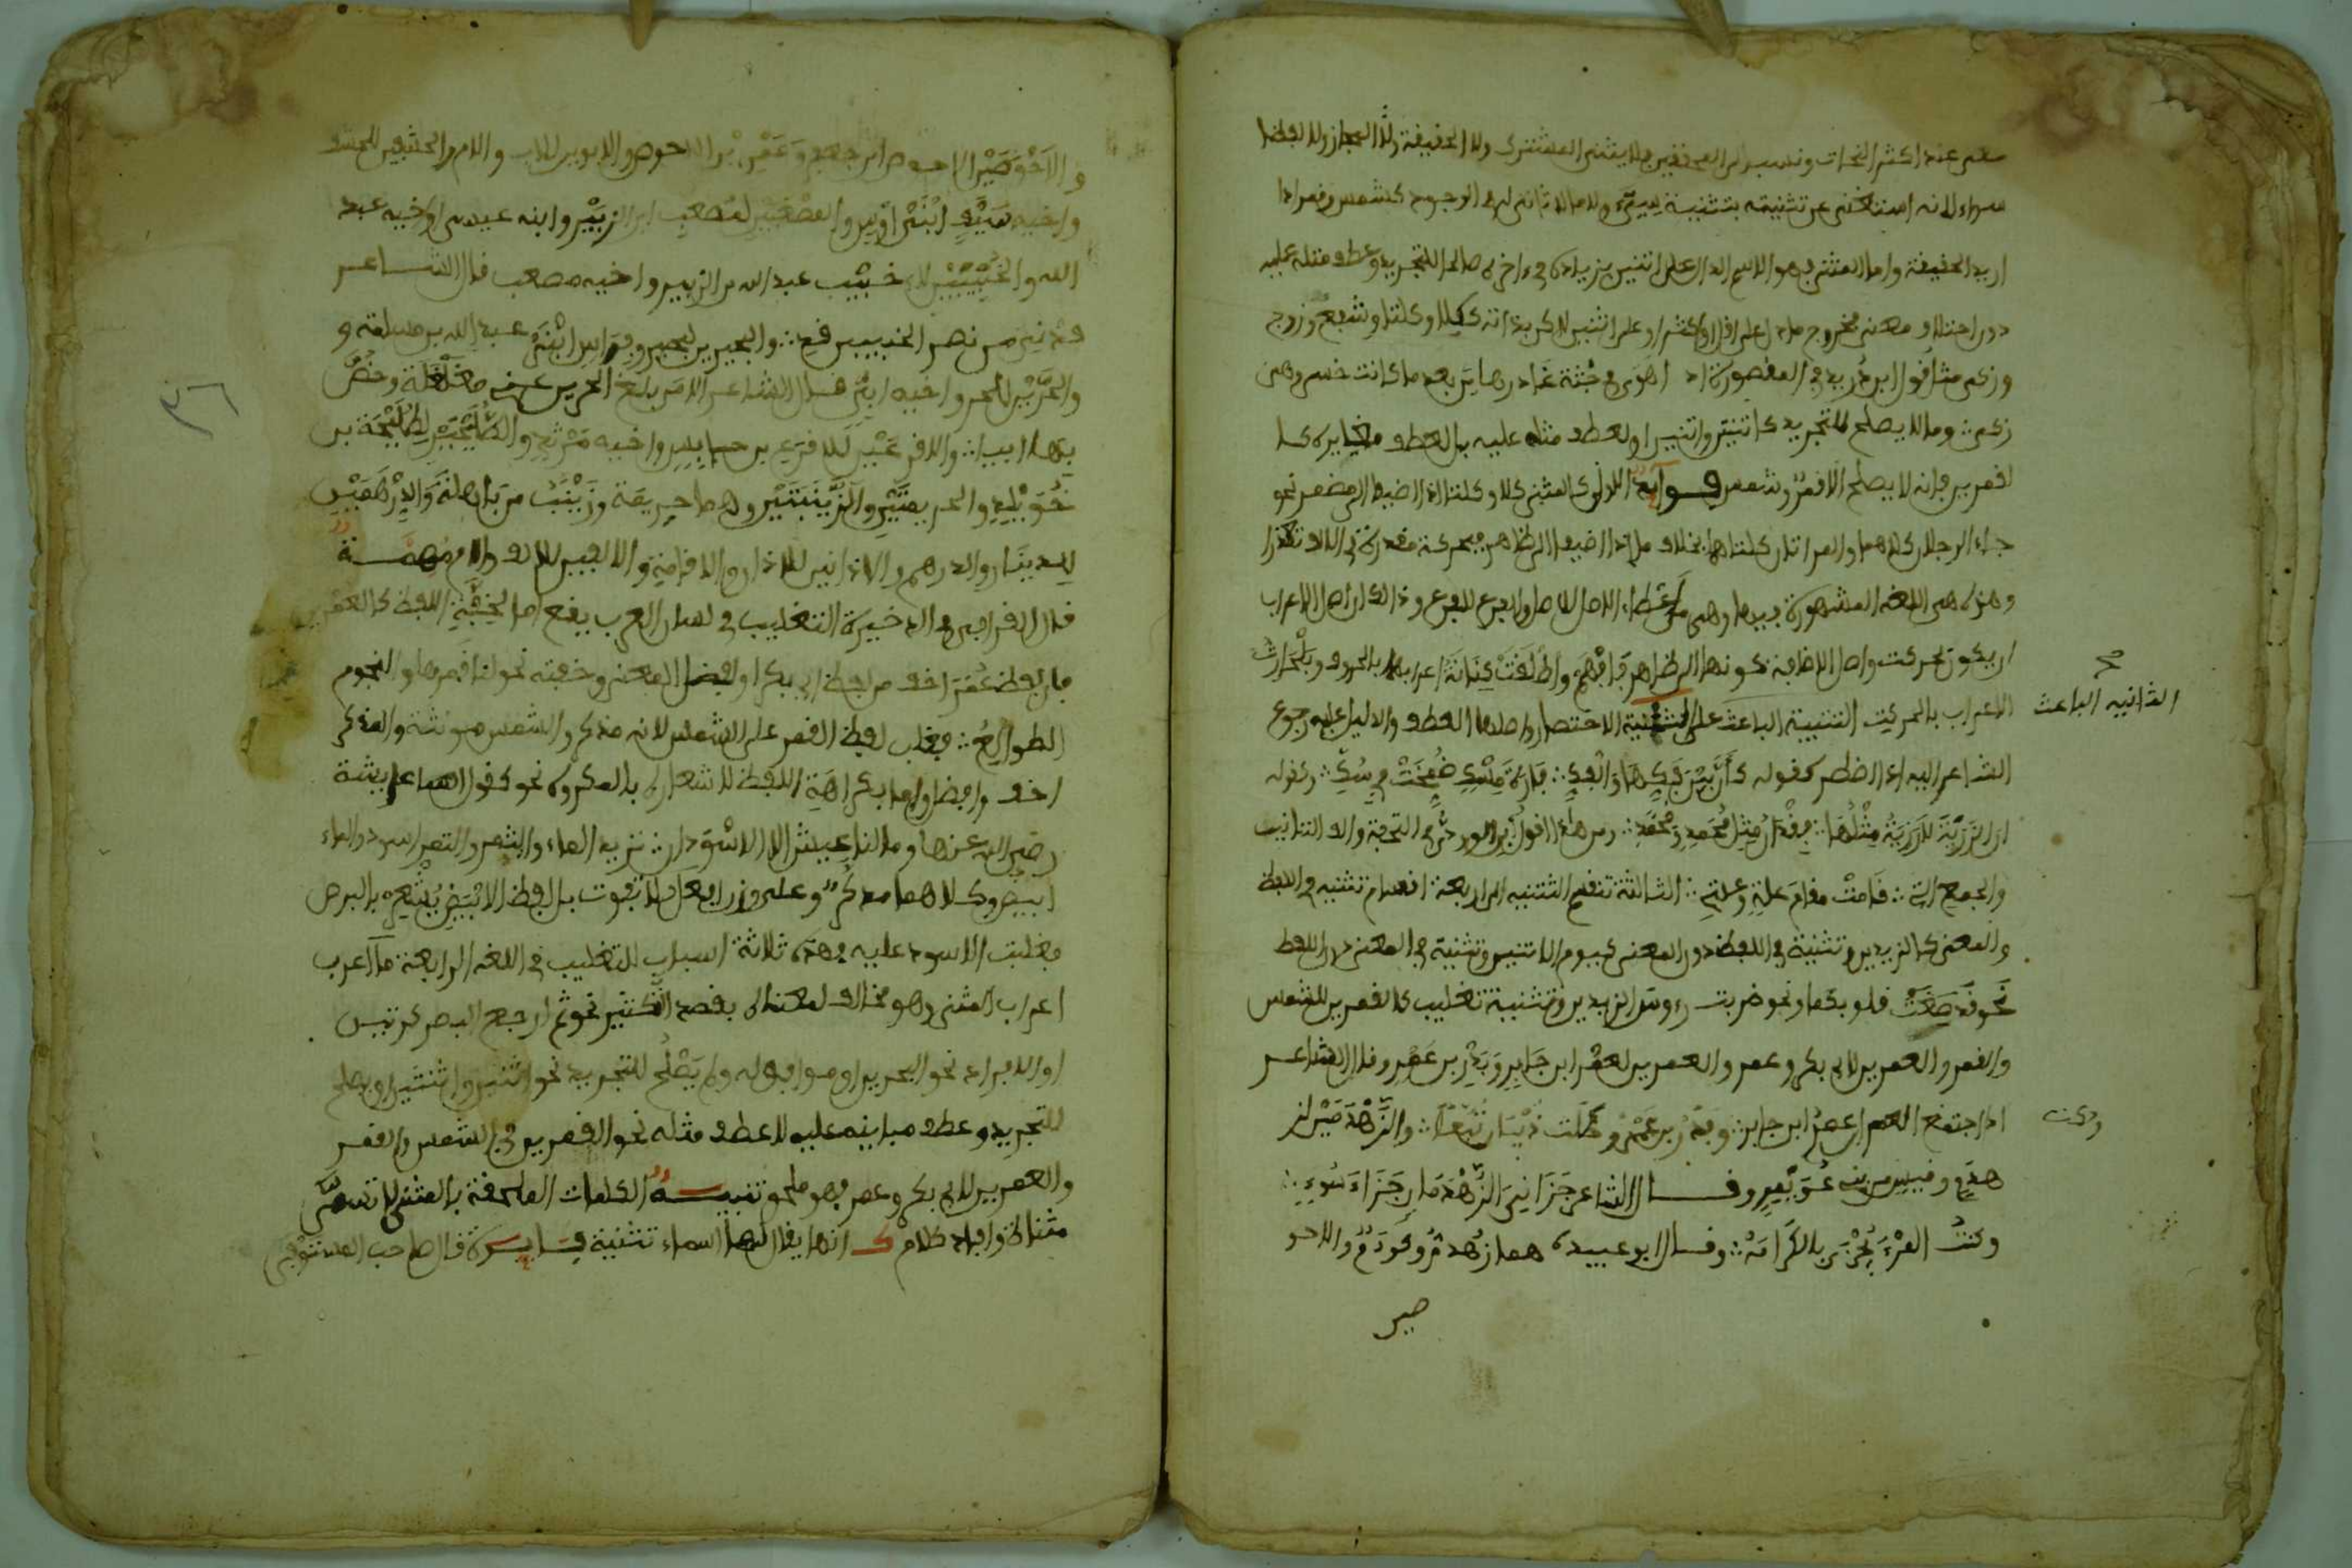 معنى عند اكثر النحات ونسب الى المحققين فلا يثنى المشترك ولا الحقيقة ولا المجاز ولا لفظ
سواء لانه استغنى عن تثنيته بتثنية سيّ ولا ما لا ثانى له فى الوجود كشمس وقمر اذا
اريد الحقيقة واما المثنى فهو الاسم الدال على اثنين بزيادة فى اخره صالحا للتجريد وعطف مثله عليه
دون اختلاف معنى فخرج ما دل على اقل او اكثر او على اثنين لاكن بذاته ككلا وكلتا وشفع وزوج
وزكى مثا قول ابن دريد فى المقصورة اذ اهوى فى جثة غادرها من بعد ما كانت خسى وهى
زكى وما لا يصلح للتجريد كاثنين واثنتين او لعطف مثله عليه بل لعطف مغايره كا
لقمرين فانه لا يصلح الا قمر وشمس فوايد الاولى المثنى كلا وكلتا اذا اضيف الى مضمر نحو
جاء الرجلان كلاهما والمراتان كلتاهما بخلاف ما اذا اضيفا الى ظاهر فبحركة مقدرة فى الالف تعذرا
وهذه هى اللغة المشهورة فيهما وهى من اعطاء الاصل للاصل والفرع للفرع وذالك ان اصل الاعراب
ان يكون بحركت واصل الاضافة كونها الى ظاهر فافهم واطلقت كنانة اعرابهما بالحروف وبلحارث
الاعراب بالحركت التثنية الباعث على التثنية الاختصار واصلها العطف والدليل عليه رجوع
الثانيه الباعث
الشاعر اليه اذا اضطر كقوله كأن بين فكها والفك فارة مسك ذبحت فى سك وكقوله
ان الرزية لا رزية مثلها فقدان مثل محمد ومحمد ومن هاذا قول ابن الوردي فى التحفة والف التانيث
والجمع التى قامت مقام علة وعلة الثالثة تنقسم التثنيه الى اربعة اقسام تثنيه فى اللفظ
والمعنى كالزيدين وتثنية فى اللفظ دون المعنى كيوم الاثنين وتثنية فى المعنى دون اللفظ
نحو فقد صغت قلوبكما ونحو ضربت رءوس الزيدين وتثنية تغليب كالقمرين للشمس
والقمر والعمرين لابى بكر وعمر والعمرين لعمر ابن جابر وبدر بن عمر وقال الشاعر
اذا اجتمع العمران عمر ابن جابر وبدر بن عمر وخلت ذبيان تبعا والزهدمين لز
هدم وقيس من بنى عوير وقال الشاعر جزاني الزهدمان جزاء سوء
وكنت المرء يجزى بالكرامة وقال ابو عبيدة هما زهدم وكردم والاحو
صين
والاحوصين الاحوص ابن جعفر وعمر بن الاحوص والابوين للاب والام والحنتفين للحنتف
واخيه سيف ابنى اوس والمصعبين لمصعب ابن الزبير وابنه عيسى او اخيه عبد
الله والخبيبين لابى خبيب عبد الله بن الزبير واخيه مصعب قال الشاعر
قدني من نصر الخبيبين قدي والبجيرين لبجير وفراس ابنى عبد الله بن سلمة و
والحرين للحر واخيه ابي قال الشاعر الا من بلغ الحرين عنى مغلغلة وخص
بها ابيا والاقرعين للاقرع بن حابس واخيه مرثد والطليحتين لطليحة بن
خويلد والحريفتين والزينبتين وهما حريقة وزينبة من باهلة والدرهمين
للدينار والدرهم والاذانين للاذان والاقامة والالفين للالف واللام مهمة
قال القرافى فى الذخيرة التغليب فى لسان العرب يقع اما لخفة اللفظ كالعمرين
فان لفظ عمر اخف من لفظ ابى بكر او لفضل المعنى وخفته نحو لنا قمراها والنجوم
الطوالع فغلب لفظ القمر على الشمس لانه مذكر والشمس مونثة والمذكر
اخف وافضل واما بكراهة اللفظ للاشعار بالمكروه نحو كقول عايشة
رضى الله عنها وما لنا عيش الا الاسودان تريد الماء والتمر والتمر اسود والماء
ابيض وكلاهما مذكر وعلى وزن افعل فلا تفوت بل لفظ الابيض يشعره بالبرص
فغلبت الاسود عليه فهذه ثلاثة اسباب للتغليب فى اللغه الرابعة ما اعرب
اعراب المثنى وهو مخالف لمعناه يقصد التكثير نحو ثم ارجع البصر كرتين
او الافراد نحو البحرين او موافق له ولم يصلح للتجريد نحو اثنين واثنتين او يصلح
للتجريد وعطف مباينه عليه لا عطف مثله نحو القمرين فى الشمس والقمر
والعمرين لابى بكر وعمر فهو ملحق تنبيه الكلمات الملحقة بالمثنى لا تسمى
مثناة وافاد كلام ك انها يقال لها اسماء تثنية قال صاحب المستوفى
٣٦